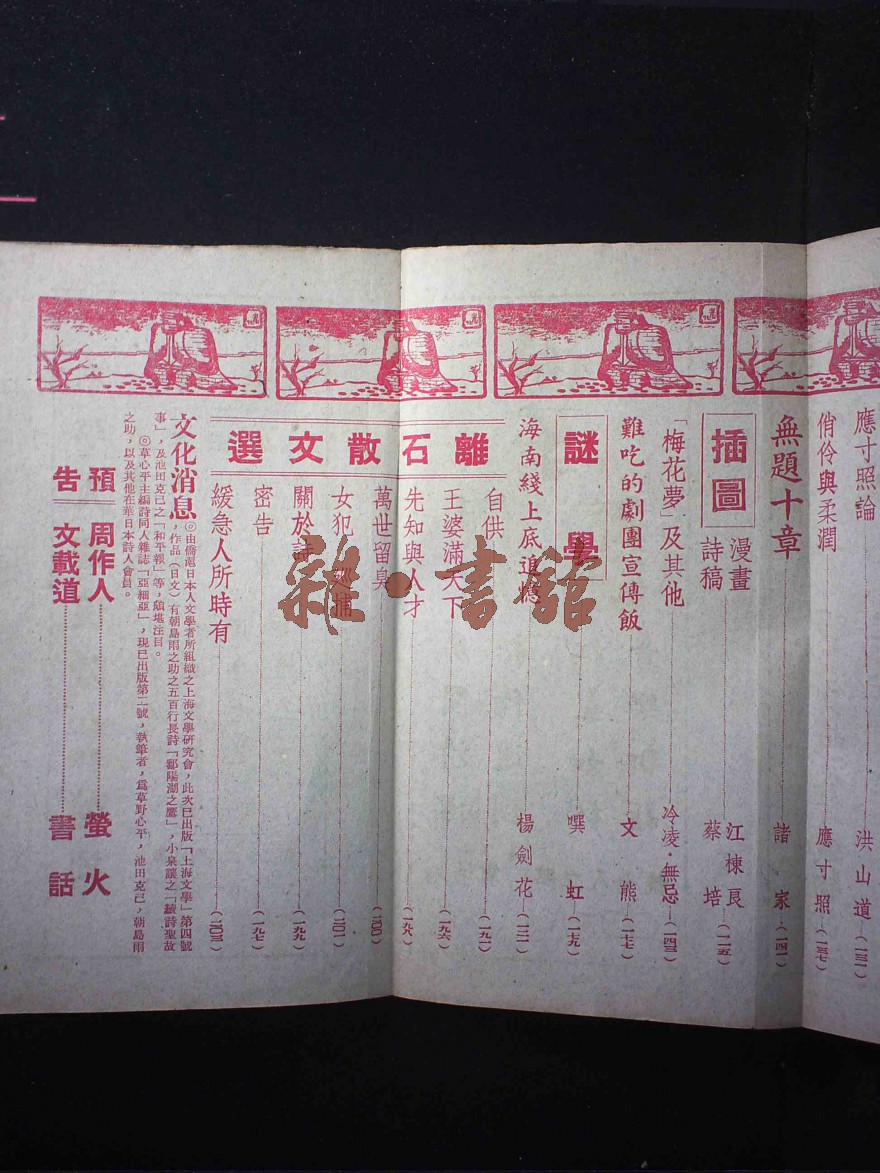 應寸照論 洪山道 (一三一)
俏伶與柔潤 應寸照 (一三七)
無題十章 諸家 (一四一)
插圖
漫畫 江棟良
詩稿 蔡培 (一一五)
「梅花夢」及其他 冷凌·無忌 (一四三)
難吃的劇團宣傳飯 文熊 (一七七)
謎學 噀虹 (一七九)
海南綫上底追憶 楊劍花 (一三一)
離石散文選
自供 (一九一)
王婆滿天下 (一九六)
先知與人才 (一九八)
萬世留臭 (二〇〇)
女犯 捕 (二〇一)
關於詩 (一九九)
密告 (一九七)
緩急人所時有 (二〇三)
文化消息
◎由僑滬日本人文學者所組織之上海文學研究會,此次已出版「上海文學」第四號,作品(日文)有朝島雨之助之五百行長詩「鄱陽湖之鷹」,小泉讓之「續詩聖故
事」,及池田克己之「和平報」等,頗堪注目。
◎草心平主編詩同人雜誌「亞細亞」,現已出版第二號,執筆者,為草野心平,池田克己,朝島雨
之助,以及其他在華日本詩人會員。
預告
周作人 螢火
文載道 書話
雜·書館